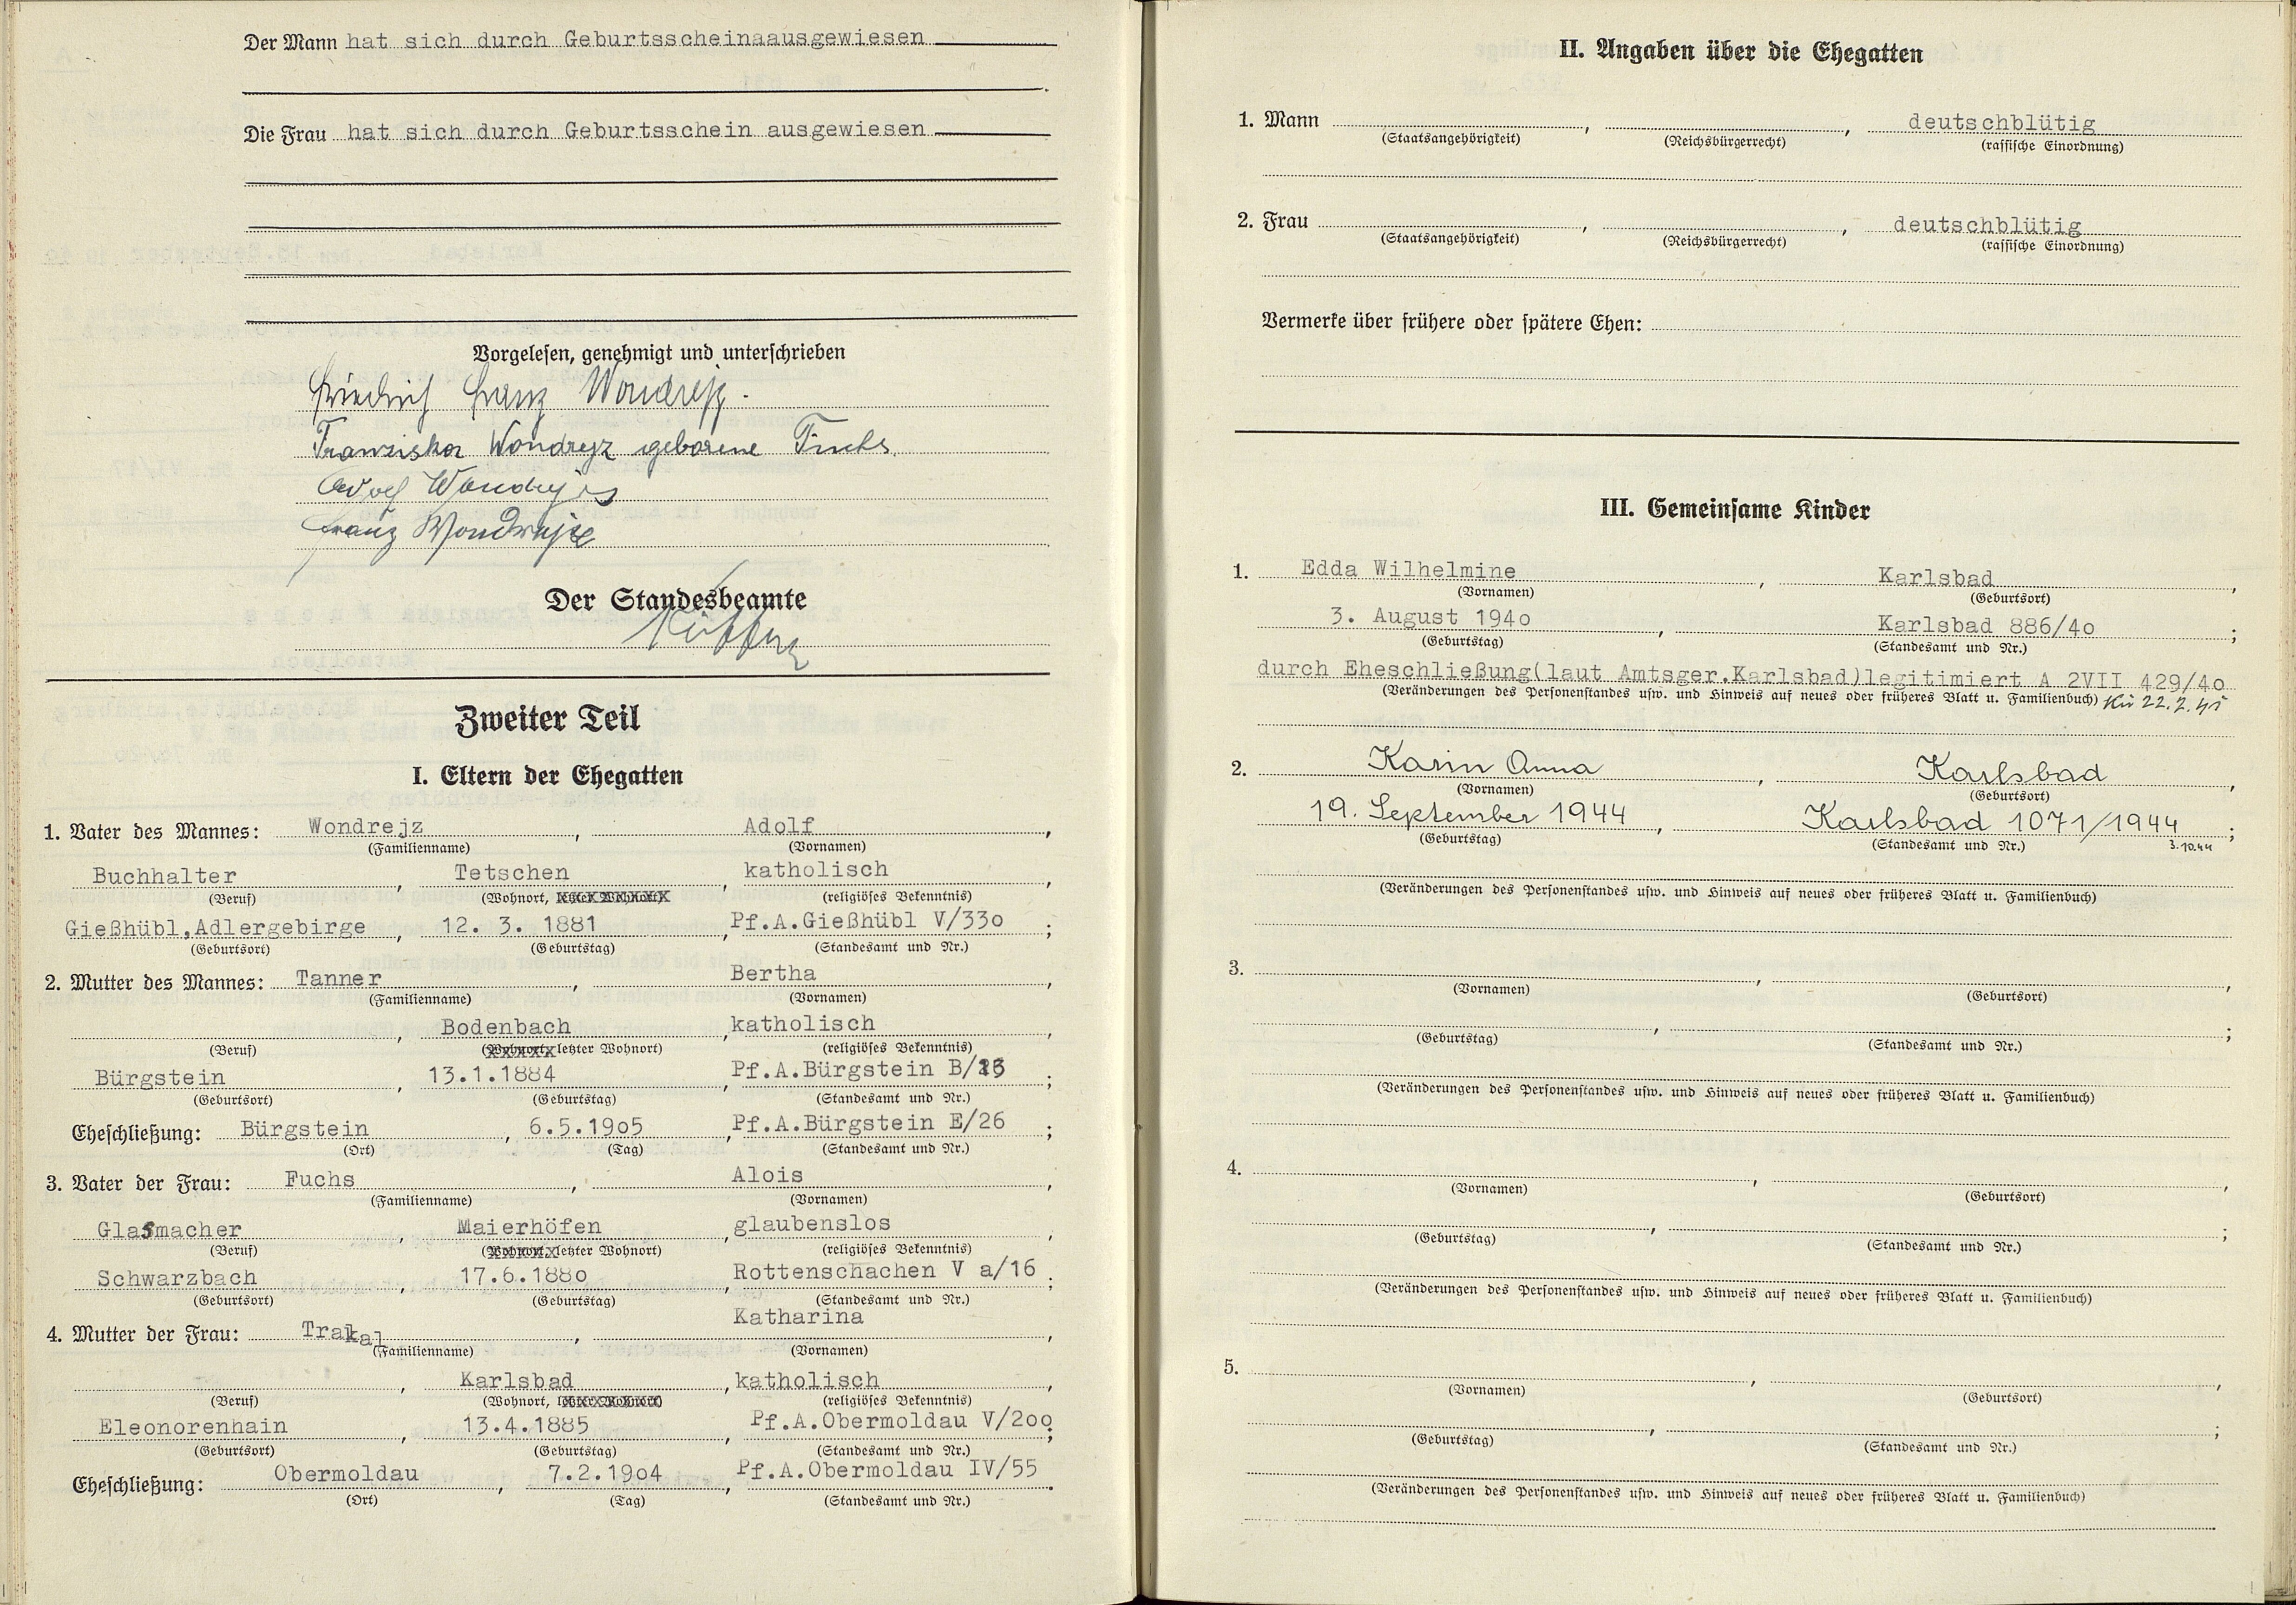 Der Mann hat sich durch Geburtsscheinaausgewiesen
Die Frau hat sich durch Geburtsschein ausgewiesen
Vorgelesen, genehmigt und unterschrieben
Friedrich Franz Wondrejz.
Franziska Wondrejz geborene Fuchs.
Adolf Wondrejz
Franz Wondrejz
Der Standesbeamte
Zweiter Teil
I. Eltern der Ehegatten
1. Vater des Mannes: Wondrejz, Adolf,
(Familienname) (Vornamen)
Buchhalter, Tetschen, katholisch,
(Beruf) (Wohnort, letzter Wohnort) (religiöses Bekenntnis)
Gießhübl,Adlergebirge, 12. 3. 1881, Pf.A.Gießhübl V/33o;
(Geburtsort) (Geburtstag) (Standesamt und Nr.)
2. Mutter des Mannes: Tanner, Bertha,
(Familienname) (Vornamen)
, Bodenbach, katholisch,
(Beruf) (Wohnort, letzter Wohnort) (religiöses Bekenntnis)
Bürgstein, 13.1.1884, Pf.A.Bürgstein B/;
(Geburtsort) (Geburtstag) (Standesamt und Nr.)
Eheschließung: Bürgstein, 6.5.19o5, Pf.A.Bürgstein E/26;
(Ort) (Tag) (Standesamt und Nr.)
3. Vater der Frau: Fuchs, Alois,
(Familienname) (Vornamen)
Glasmacher, Maierhöfen, glaubenslos,
(Beruf) (Wohnort, letzter Wohnort) (religiöses Bekenntnis)
Schwarzbach, 17.6.188o, Rottenschachen V a/16;
(Geburtsort) (Geburtstag) (Standesamt und Nr.)
4. Mutter der Frau: Trakal, Katharina,
(Familienname) (Vornamen)
, Karlsbad, katholisch,
(Beruf) (Wohnort, letzter Wohnort) (religiöses Bekenntnis)
Eleonorenhain, 13.4.1885, Pf.A.Obermoldau V/2oo;
(Geburtsort) (Geburtstag) (Standesamt und Nr.)
Eheschließung: Obermoldau, 7.2.19o4, Pf.A.Obermoldau IV/55.
(Ort) (Tag) (Standesamt und Nr.)
II. Angaben über die Ehegatten
1. Mann , , deutschblütig
(Staatsangehörigkeit) (Reichsbürgerrecht) (rassische Einordnung)
2. Frau , , deutschblütig
(Staatsangehörigkeit) (Reichsbürgerrecht) (rassische Einordnung)
Vermerke über frühere oder spätere Ehen:
III. Gemeinsame Kinder
1. Edda Wilhelmine, Karlsbad,
(Vornamen) (Geburtsort)
3. August 194o, Karlsbad 886/4o;
(Geburtstag) (Standesamt und Nr.)
durch Eheschließung(laut Amtsger.Karlsbad)legitimiert A 2VII 429/4o
(Veränderungen des Personenstandes usw. und Hinweis auf neues oder früheres Blatt u. Familienbuch) 22.2.41
2. Karin Anna, Karlsbad,
(Vornamen) (Geburtsort)
19. September 1944, Karlsbad 1071/1944;
(Geburtstag) (Standesamt und Nr.) 3.10.44
(Veränderungen des Personenstandes usw. und Hinweis auf neues oder früheres Blatt u. Familienbuch)
3. , ,
(Vornamen) (Geburtsort)
, ;
(Geburtstag) (Standesamt und Nr.)
(Veränderungen des Personenstandes usw. und Hinweis auf neues oder früheres Blatt u. Familienbuch)
4. , ,
(Vornamen) (Geburtsort)
, ;
(Geburtstag) (Standesamt und Nr.)
(Veränderungen des Personenstandes usw. und Hinweis auf neues oder früheres Blatt u. Familienbuch)
5. , ,
(Vornamen) (Geburtsort)
, ;
(Geburtstag) (Standesamt und Nr.)
(Veränderungen des Personenstandes usw. und Hinweis auf neues oder früheres Blatt u. Familienbuch)